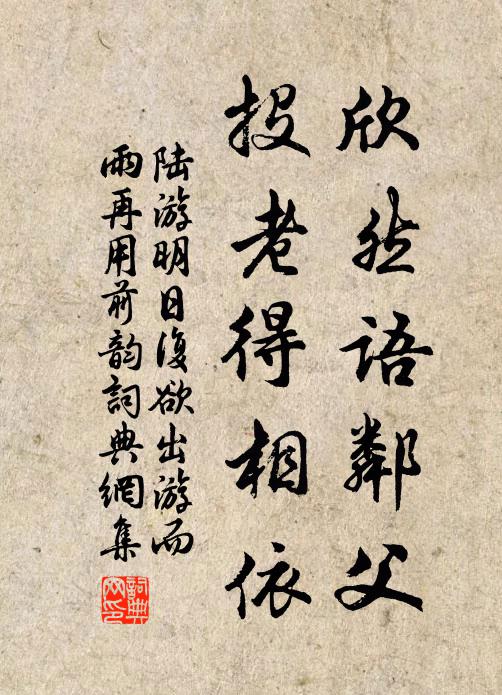 欣然語鄰父
投老得相依
陆游明日復欲出游而
雨再用前韵詞典網集